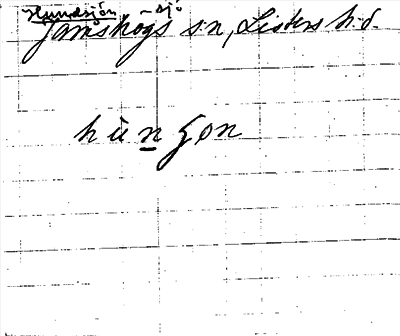 Hundsjön sjö
Jämshögs sn, Listers hd.
hùnʒon